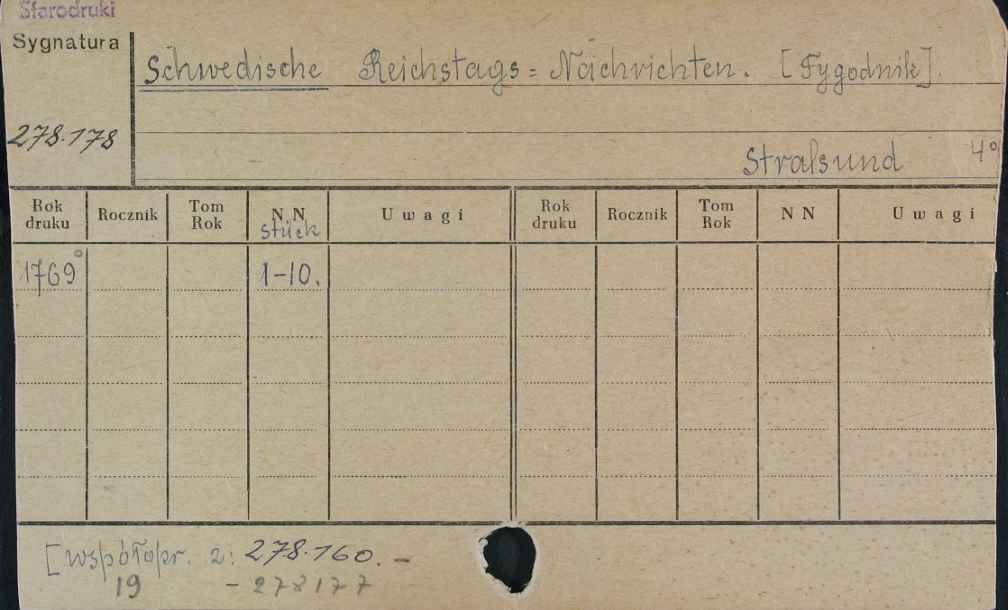 Starodruki
Sygnatura
Schwedische Reichstags = Nachrichten. [Tygodnik].
278.178
Stralsund 4°
Rok druku Rocznik Tom Rok N.N. Stück Uwagi Rok druku Rocznik Tom Rok NN Uwagi
1769° 1-10.
[współopr. z: 278.160. -
19 - 278177